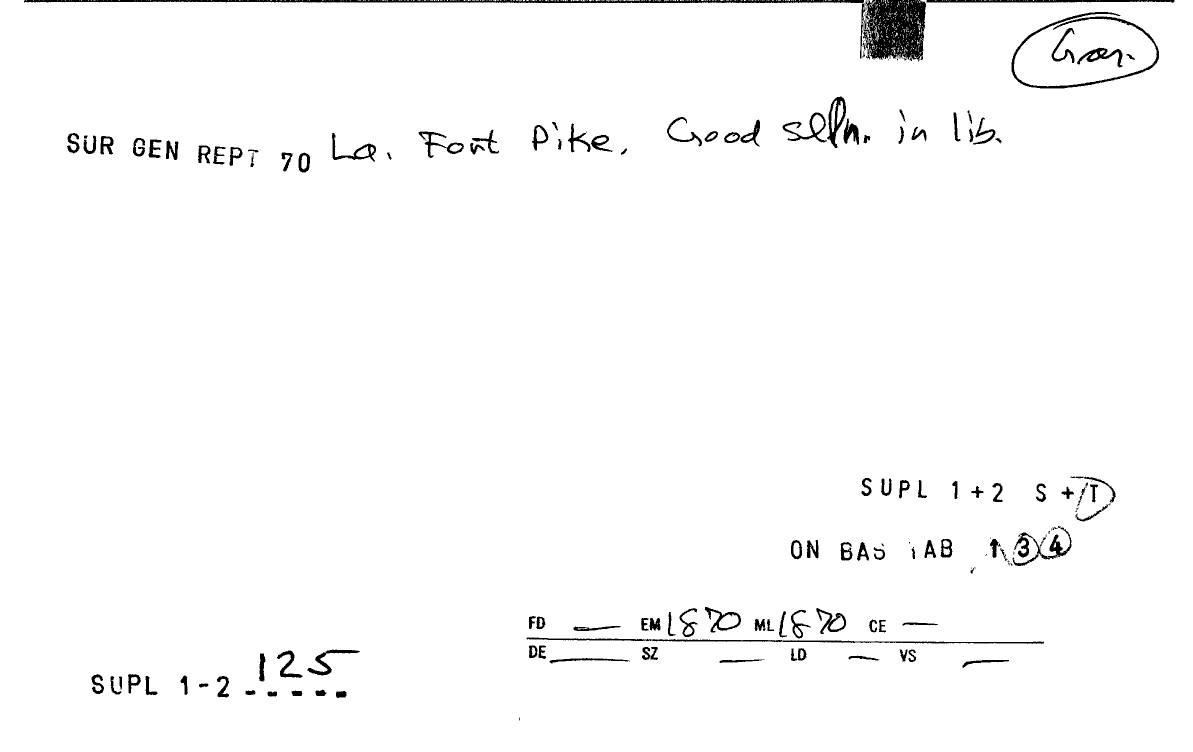 SUR GEN REPT 70 La. Fort Pike. Good seln. in lib.
SUPL 1+2 S+T
ON BAS TAB 1 3 4
FD — EM 1870 ML 1870 CE —
DE — SZ — LD — VS —
SUPL 1-2 125